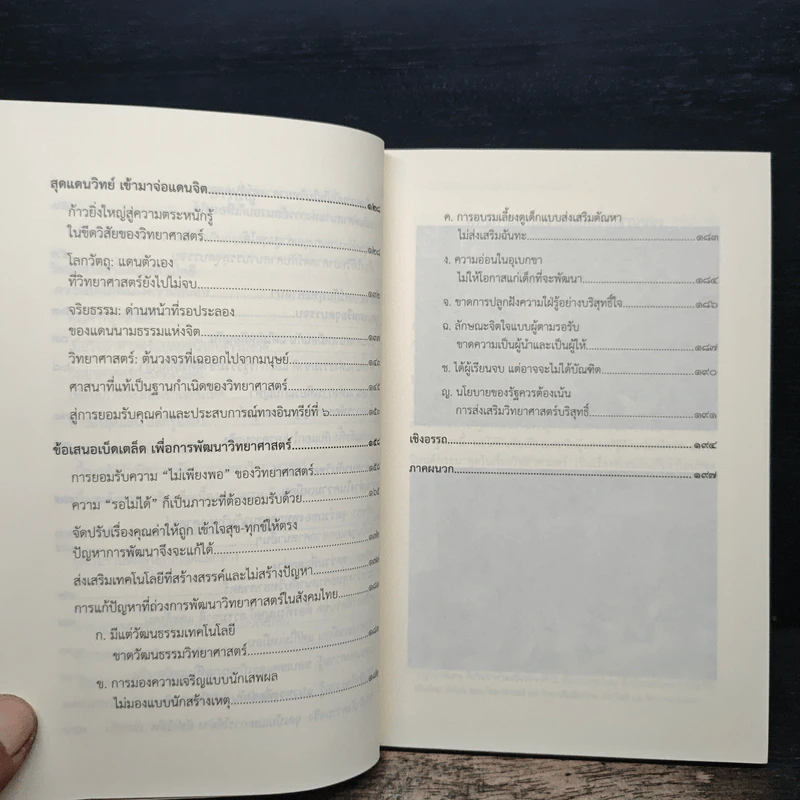 สุดแดนวิทย์ เข้ามาจ่อแดนจิต...๑๒๘
ก้าวยิ่งใหญ่สู่ความตระหนักรู้
ในขีดวิสัยของวิทยาศาสตร์...๑๒๘
โลกวัตถุ: แดนตัวเอง
ที่วิทยาศาสตร์ยังไปไม่จบ...๑๓๒
จริยธรรม: ด่านหน้าที่รอประลอง
ของแดนนามธรรมแห่งจิต...๑๓๗
วิทยาศาสตร์: ต้นวงจรที่เฉออกไปจากมนุษย์...
ศาสนาที่แท้เป็นฐานกำเนิดของวิทยาศาสตร์...๑๔๕
สู่การยอมรับคุณค่าและประสบการณ์ทางอินทรีย์ที่ ๖...๑๕๐
ข้อเสนอเบ็ดเตล็ด เพื่อการพัฒนาวิทยาศาสตร์...๑๕๘
การยอมรับความ “ไม่เพียงพอ” ของวิทยาศาสตร์...๑๕๘
ความ “รอไม่ได้” ก็เป็นภาวะที่ต้องยอมรับด้วย...๑๖๕
จัดปรับเรื่องคุณค่าให้ถูก เข้าใจสุข-ทุกข์ให้ตรง
ปัญหาการพัฒนาจึงจะแก้ได้...
ส่งเสริมเทคโนโลยีที่สร้างสรรค์และไม่สร้างปัญหา...
การแก้ปัญหาที่ถ่วงการพัฒนาวิทยาศาสตร์ในสังคมไทย...๑๘๑
ก. มีแต่วัฒนธรรมเทคโนโลยี
ขาดวัฒนธรรมวิทยาศาสตร์...
ข. การมองความเจริญแบบนักเสพผล
ไม่มองแบบนักสร้างเหตุ...
ค. การอบรมเลี้ยงดูเด็กแบบส่งเสริมตัณหา
ไม่ส่งเสริมฉันทะ...๑๘๓
ง. ความอ่อนในอุเบกขา
ไม่ให้โอกาสแก่เด็กที่จะพัฒนา...๑๘๔
จ. ขาดการปลูกฝังความใฝ่รู้อย่างบริสุทธิ์ใจ...๑๘๖
ฉ. ลักษณะจิตใจแบบผู้ตามรอรับ
ขาดความเป็นผู้นำและเป็นผู้ให้...๑๘๗
ช. ได้ผู้เรียนจบ แต่อาจจะไม่ได้บัณฑิต...๑๙๐
ญ. นโยบายของรัฐควรต้องเน้น
การส่งเสริมวิทยาศาสตร์บริสุทธิ์...๑๙๑
เชิงอรรถ...๑๙๔
ภาคผนวก...๑๙๗